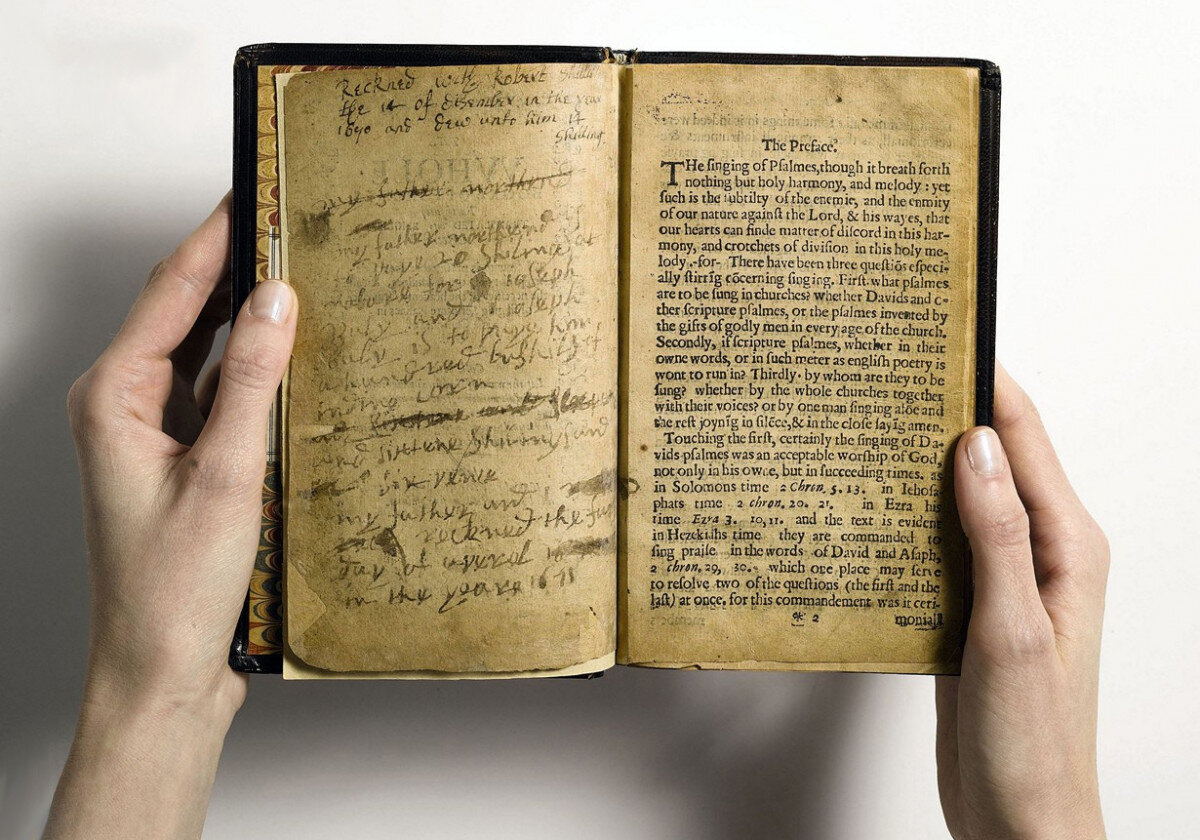 Reckned with Robert
the 14 of disember in the year
1690 and dew unto him 14
shilling
my father northend
my father northend
to paye 20 shilings at
for Joseph
and Joseph
is to paye him
a hundred bushils of
corn
and sixtene shilings and
six pence
my father and I
reckned the
day of
in the yeare 1671
The Preface.
THe ſinging of Pſalmes,though it breath forth
nothing but holy harmony, and melody : yet
ſuch is the ſubtilty of the enemie, and the enmity
of our nature againſt the Lord, & his wayes, that
our hearts can finde matter of diſcord in this har-
mony, and crotchets of diviſion in this holy me-
lody.-for- There have been three queſtiōs eſpeci-
ally ſtirrīg cōcerning ſinging. Firſt. what pſalmes
are to be ſung in churches? whether Davids and o-
ther ſcripture pſalmes, or the pſalmes invented by
the gifts of godly men in every age of the church.
Secondly, if ſcripture pſalmes, whether in their
owne words, or in ſuch meter as engliſh poetry is
wont to run in? Thirdly. by whom are they to be
ſung? whether by the whole churches together
with their voices? or by one man ſinging alōe and
the reſt joynīg in ſilēce,& in the cloſe ſayīg amen.
Touching the firſt, certainly the ſinging of Da-
vids pſalmes was an acceptable worſhip of God,
not only in his owne, but in ſucceeding times. as
in Solomons time 2 Chron. 5. 13. in Iehoſa-
phats time 2 chron. 20. 21. in Ezra his
time Ezra 3. 10,11. and the text is evident
in Hezekiahs time they are commanded to
ſing praiſe in the words of David and Aſaph,
2 chron. 29, 30. which one place may ſerve
to reſolve two of the queſtions (the firſt and the
laſt) at once. for this commandement was it ceri-
* 2 moniall